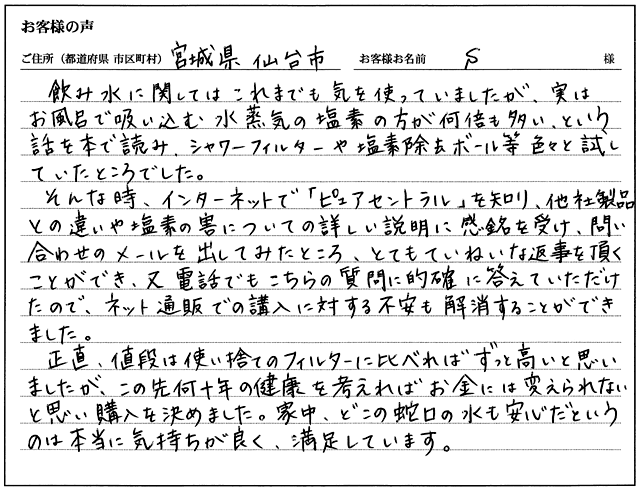 お客様の声
ご住所（都道府県 市区町村） 宮城県 仙台市 お客様お名前 S 様
飲み水に関してはこれまでも気を使っていましたが、実は
お風呂で吸い込む水蒸気の塩素の方が何倍も多い、という
話を本で読み、シャワーフィルターや塩素除去ボール等色々と試し
ていたところでした。
そんな時、インターネットで「ピュアセントラル」を知り、他社製品
との違いや塩素の害についての詳しい説明に感銘を受け、問い
合わせのメールを出してみたところ、とてもていねいな返事を頂く
ことができ、又電話でもこちらの質問に的確に答えていただけ
たので、ネット通販での購入に対する不安も解消することができ
ました。
正直、値段は使い捨てのフィルターに比べればずっと高いと思い
ましたが、この先何十年の健康を考えればお金には変えられない
と思い購入を決めました。家中、どこの蛇口の水も安心だという
のは本当に気持ちが良く、満足しています。